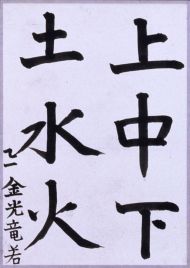 上中下
土水火
乙一金光竜若